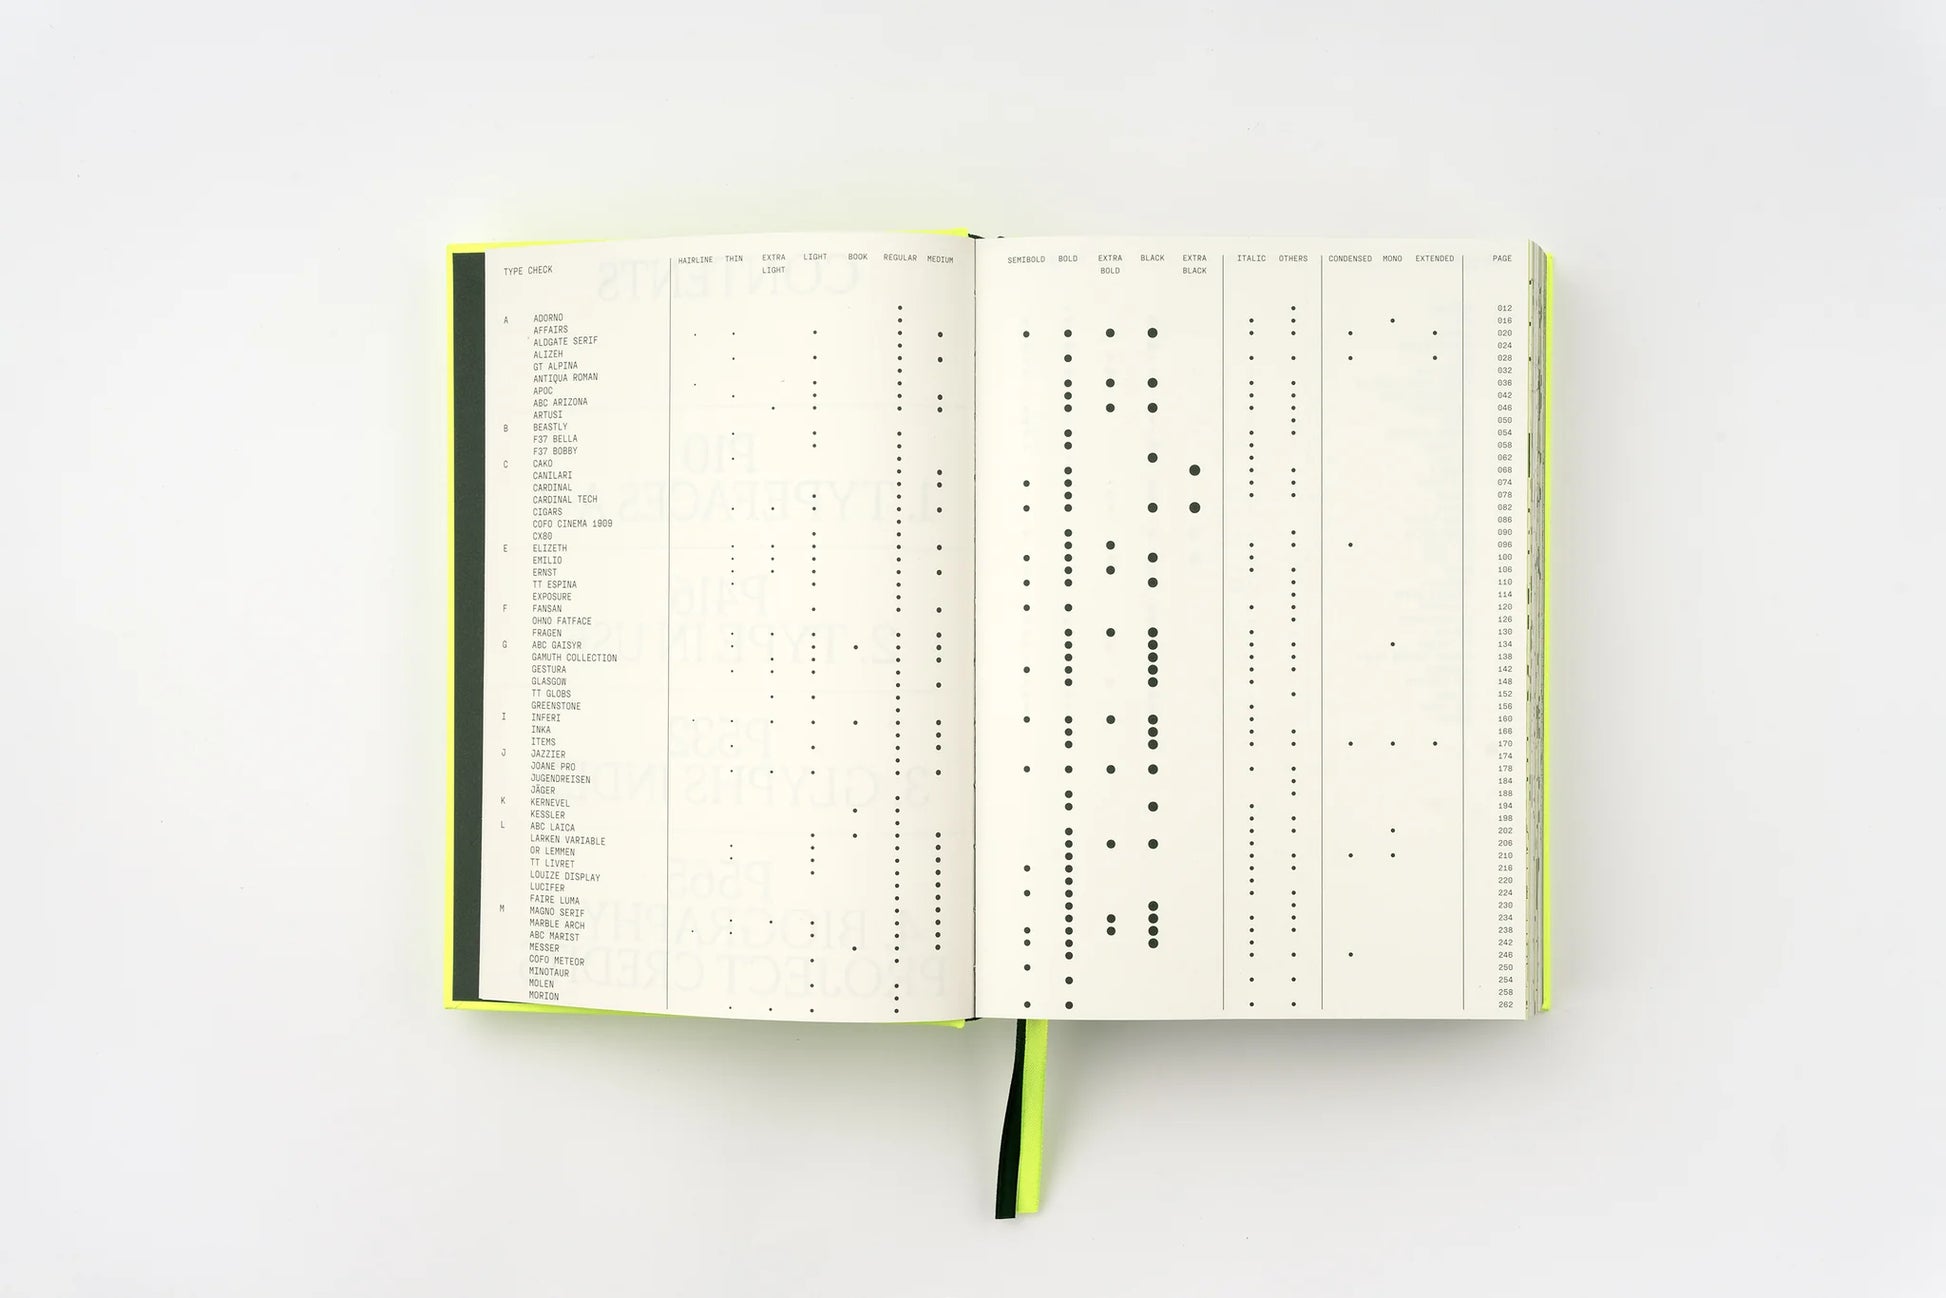 TYPE CHECK HAIRLINE THIN EXTRA LIGHT LIGHT BOOK REGULAR MEDIUM SEMIBOLD BOLD EXTRA BOLD BLACK EXTRA BLACK ITALIC OTHERS CONDENSED MONO EXTENDED PAGE
A ADORNO 012
AFFAIRS 016
ALDGATE SERIF 020
ALIZEH 024
GT ALPINA 028
ANTIQUA ROMAN 032
APOC 036
ABC ARIZONA 042
ARTUSI 046
B BEASTLY 050
F37 BELLA 054
F37 BOBBY 058
C CAKO 062
CANILARI 068
CARDINAL 074
CARDINAL TECH 078
CIGARS 082
COFO CINEMA 1909 086
CX80 090
E ELIZETH 096
EMILIO 100
ERNST 106
TT ESPINA 110
EXPOSURE 114
F FANSAN 120
OHNO FATFACE 126
FRAGEN 130
G ABC GAISYR 134
GAMUTH COLLECTION 138
GESTURA 142
GLASGOW 148
TT GLOBS 152
GREENSTONE 156
I INFERI 160
INKA 166
ITEMS 170
J JAZZIER 174
JOANE PRO 178
JUGENDREISEN 184
JÄGER 188
K KERNEVEL 194
KESSLER 198
L ABC LAICA 202
LARKEN VARIABLE 206
OR LEMMEN 210
TT LIVRET 216
LOUIZE DISPLAY 220
LUCIFER 224
FAIRE LUMA 230
M MAGNO SERIF 234
MARBLE ARCH 238
ABC MARIST 242
MESSER 246
COFO METEOR 250
MINOTAUR 254
MOLEN 258
MORION 262